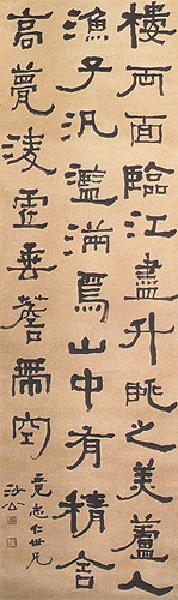 樓兩面臨江盡升眺之美蘆人
漁子汎濫滿焉山中有精舍
高甍凌虛垂簷帶空
忠仁世兄
沙公